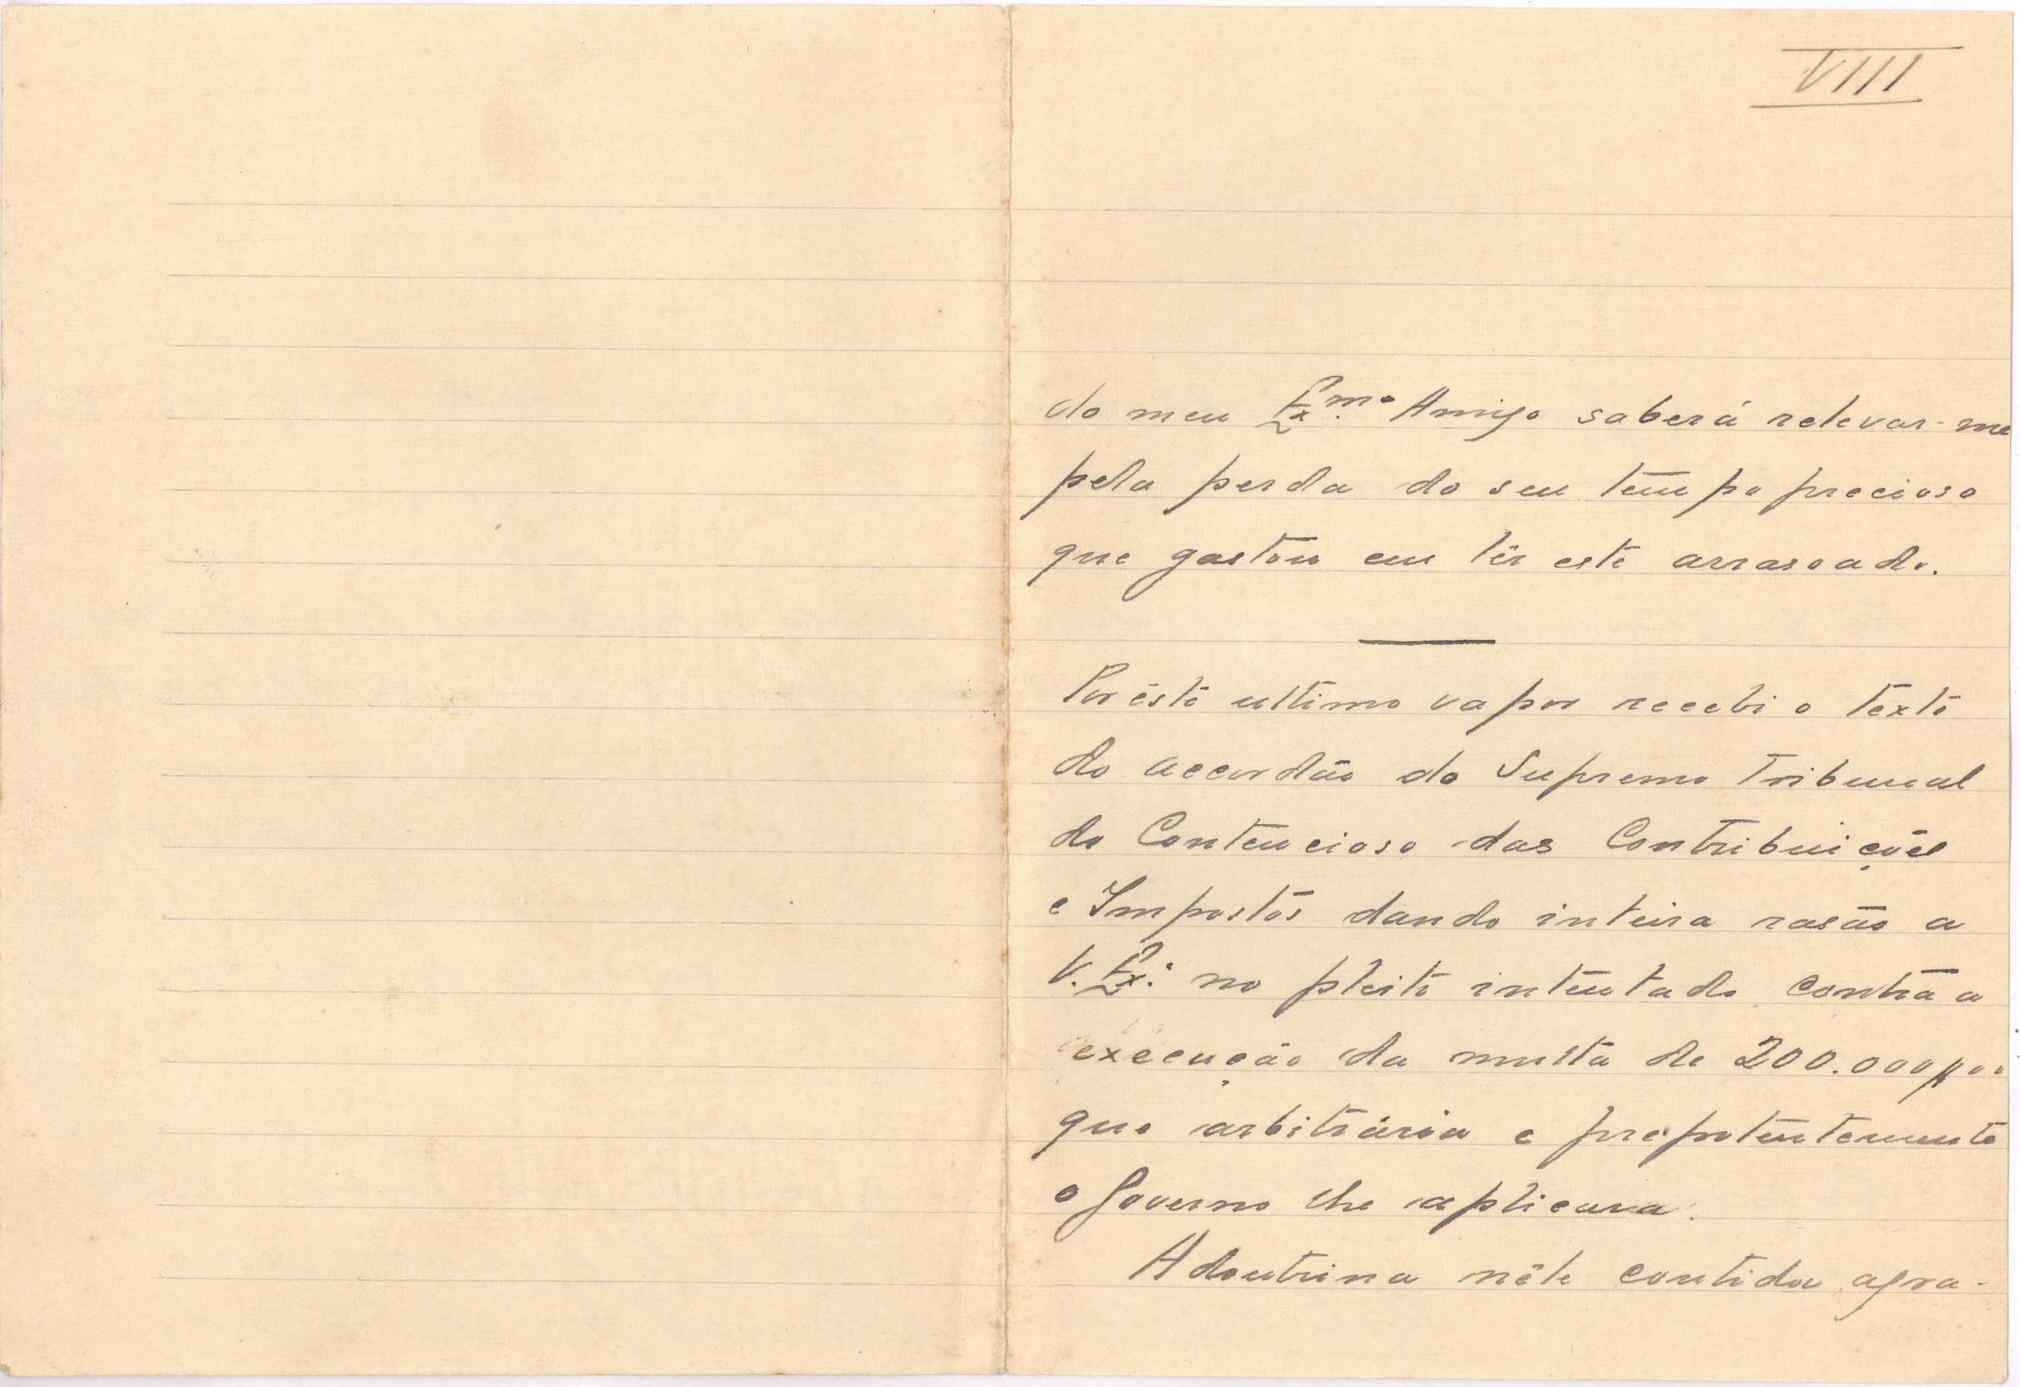 VIII
do meu Ex.mo Amigo saberá relevar-me
pela perda do seu tempo precioso
que gastou em lêr este arrasoado.
Por êste ultimo vapor recebi o texto
do accordão do Supremo Tribunal
do Contencioso das Contribuições
e Impostos dando inteira rasão a
V. Ex.ª no pleito intentado contra a
execução da multa de 200.000
que arbitrária e prepotentemente
o Governo lhe aplicara.
A doutrina nêle contida agra-